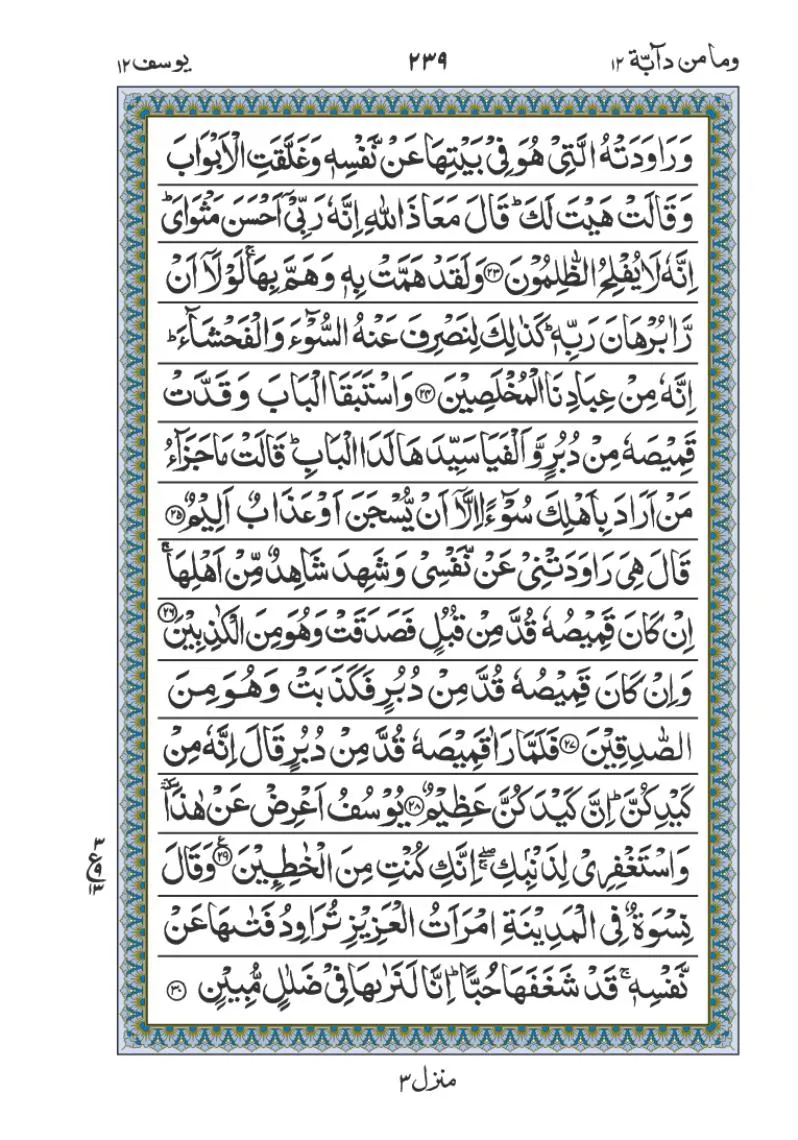 وما من دآبّة ١٢ ٢٣٩ يوسف ١٢
وَرَاوَدَتْهُ الَّتِیْ هُوَ فِیْ بَیْتِهَا عَنْ نَّفْسِهٖ وَغَلَّقَتِ الْاَبْوَابَ
وَقَالَتْ هَیْتَ لَكَ ؕ قَالَ مَعَاذَ اللهِ اِنَّهٗ رَبِّیْۤ اَحْسَنَ مَثْوَایَ ؕ
اِنَّهٗ لَا یُفْلِحُ الظّٰلِمُوْنَ ﴿۲۳﴾ وَلَقَدْ هَمَّتْ بِهٖ وَهَمَّ بِهَا ۚ لَوْلَاۤ اَنْ
رَّاٰ بُرْهَانَ رَبِّهٖ ؕ كَذٰلِكَ لِنَصْرِفَ عَنْهُ السُّوْٓءَ وَالْفَحْشَآءَ ؕ
اِنَّهٗ مِنْ عِبَادِنَا الْمُخْلَصِیْنَ ﴿۲۴﴾ وَاسْتَبَقَا الْبَابَ وَقَدَّتْ
قَمِیْصَهٗ مِنْ دُبُرٍ وَّ اَلْفَیَا سَیِّدَهَا لَدَا الْبَابِ ؕ قَالَتْ مَا جَزَآءُ
مَنْ اَرَادَ بِاَهْلِكَ سُوْٓءًا اِلَّاۤ اَنْ یُّسْجَنَ اَوْ عَذَابٌ اَلِیْمٌ ﴿۲۵﴾
قَالَ هِیَ رَاوَدَتْنِیْ عَنْ نَّفْسِیْ وَشَهِدَ شَاهِدٌ مِّنْ اَهْلِهَا ۚ
اِنْ كَانَ قَمِیْصُهٗ قُدَّ مِنْ قُبُلٍ فَصَدَقَتْ وَهُوَ مِنَ الْكٰذِبِیْنَ ﴿۲۶﴾
وَاِنْ كَانَ قَمِیْصُهٗ قُدَّ مِنْ دُبُرٍ فَكَذَبَتْ وَهُوَ مِنَ
الصّٰدِقِیْنَ ﴿۲۷﴾ فَلَمَّا رَاٰ قَمِیْصَهٗ قُدَّ مِنْ دُبُرٍ قَالَ اِنَّهٗ مِنْ
كَیْدِكُنَّ ؕ اِنَّ كَیْدَكُنَّ عَظِیْمٌ ﴿۲۸﴾ یُوْسُفُ اَعْرِضْ عَنْ هٰذَا ٚ
وَاسْتَغْفِرِیْ لِذَنْۢبِكِ ۖۚ اِنَّكِ كُنْتِ مِنَ الْخٰطِـِٕیْنَ ﴿۲۹﴾ وَقَالَ
نِسْوَةٌ فِی الْمَدِیْنَةِ امْرَاَتُ الْعَزِیْزِ تُرَاوِدُ فَتٰىهَا عَنْ
نَّفْسِهٖ ۚ قَدْ شَغَفَهَا حُبًّا ؕ اِنَّا لَنَرٰىهَا فِیْ ضَلٰلٍ مُّبِیْنٍ ﴿۳۰﴾
٣ ع ٩ ١٣
منزل ٣